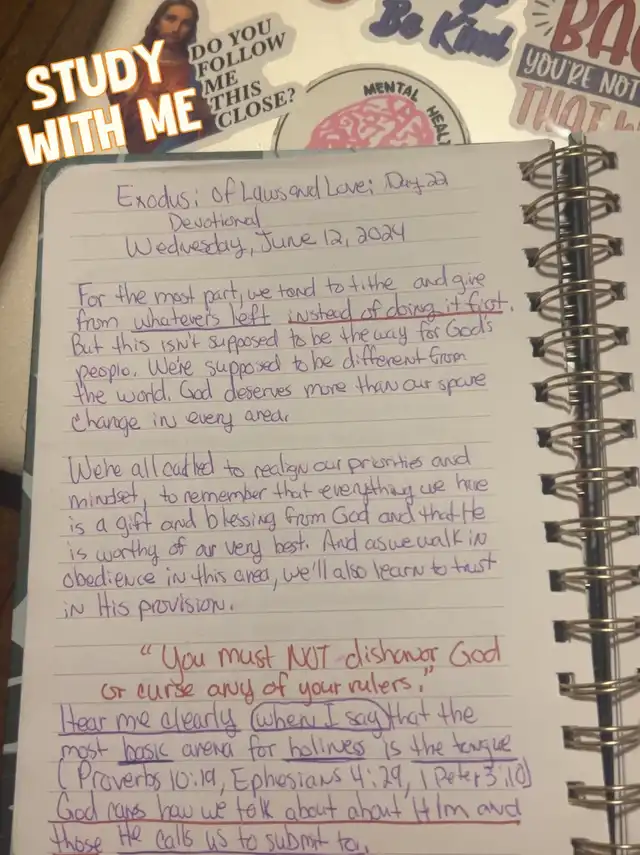 STUDY
WITH ME
DO YOU
FOLLOW
ME
THIS
CLOSE?
MENTAL HEAL
Be Kind
BA
YOU'RE NOT
THAT
Exodus: Of Laws and Love: Day 22
Devotional
Wednesday, June 12, 2024
For the most part, we tend to tithe and give
from whatevers left instead of doing it first.
But this isn't supposed to be the way for God's
people. We're supposed to be different from
the world. God deserves more than our spare
change in every area.
We're all called to realign our priorities and
mindset, to remember that everything we have
is a gift and blessing from God and that He
is worthy of our very best. And as we walk in
obedience in this area, we'll also learn to trust
in His provision.
"You must NOT dishonor God
or curse any of your rulers."
Hear me clearly when I say that the
most basic arena for holiness is the tongue
(Proverbs 10:19, Ephesians 4:29, 1 Peter 3:10)
God cares how we talk about about Him and
those He calls us to submit to.